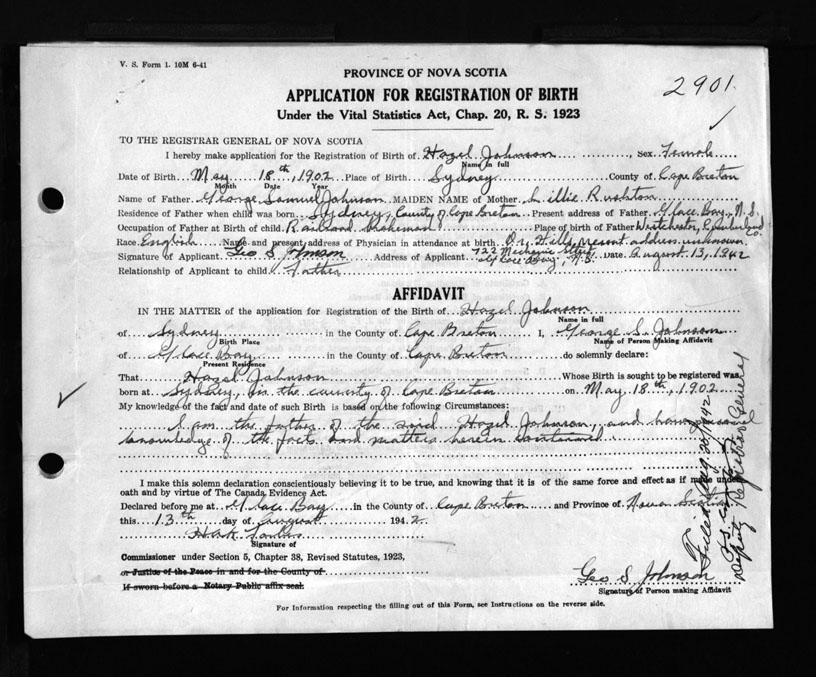 V. S. Form 1. 10M 6-41
PROVINCE OF NOVA SCOTIA
2901
APPLICATION FOR REGISTRATION OF BIRTH
Under the Vital Statistics Act, Chap. 20, R. S. 1923
TO THE REGISTRAR GENERAL OF NOVA SCOTIA
I hereby make application for the Registration of Birth of Hazel Johnson, Sex Female
Name in full
Date of Birth May 18th, 1902 Place of Birth Sydney County of Cape Breton
Month Date Year
Name of Father George Samuel Johnson MAIDEN NAME of Mother Lillie Rushton
Residence of Father when child was born Sydney, County of Cape Breton Present address of Father Glace Bay, N. S.
Occupation of Father at Birth of child Railroad brakeman Place of birth of Father Westchester, Cumberland Co.
Race English Name and present address of Physician in attendance at birth Dr. Hills, present address unknown
Signature of Applicant Geo S Johnson Address of Applicant 722 Mechanic Street Glace Bay, N.S. Date August 13, 1942
Relationship of Applicant to child Father
AFFIDAVIT
IN THE MATTER of the application for Registration of the Birth of Hazel Johnson
Name in full
of Sydney in the County of Cape Breton I, George S. Johnson
Birth Place Name of Person Making Affidavit
of Glace Bay in the County of Cape Breton do solemnly declare:
Present Residence
That Hazel Johnson Whose Birth is sought to be registered was
born at Sydney, in the county of Cape Breton on May 18th, 1902
My knowledge of the fact and date of such Birth is based on the following Circumstances:
I am the father of the said Hazel Johnson, and have personal
knowledge of the facts and matters herein contained
I make this solemn declaration conscientiously believing it to be true, and knowing that it is of the same force and effect as if made under
oath and by virtue of The Canada Evidence Act.
Declared before me at Glace Bay in the County of Cape Breton and Province of Nova Scotia
this 13th day of August 1942
Signature of
Commissioner under Section 5, Chapter 38, Revised Statutes, 1923,
or Justice of the Peace in and for the County of
If sworn before a Notary Public affix seal.
Geo S. Johnson
Signature of Person making Affidavit
For Information respecting the filling out of this Form, see Instructions on the reverse side.
Filed Aug. 20/1942
Deputy Registrar General